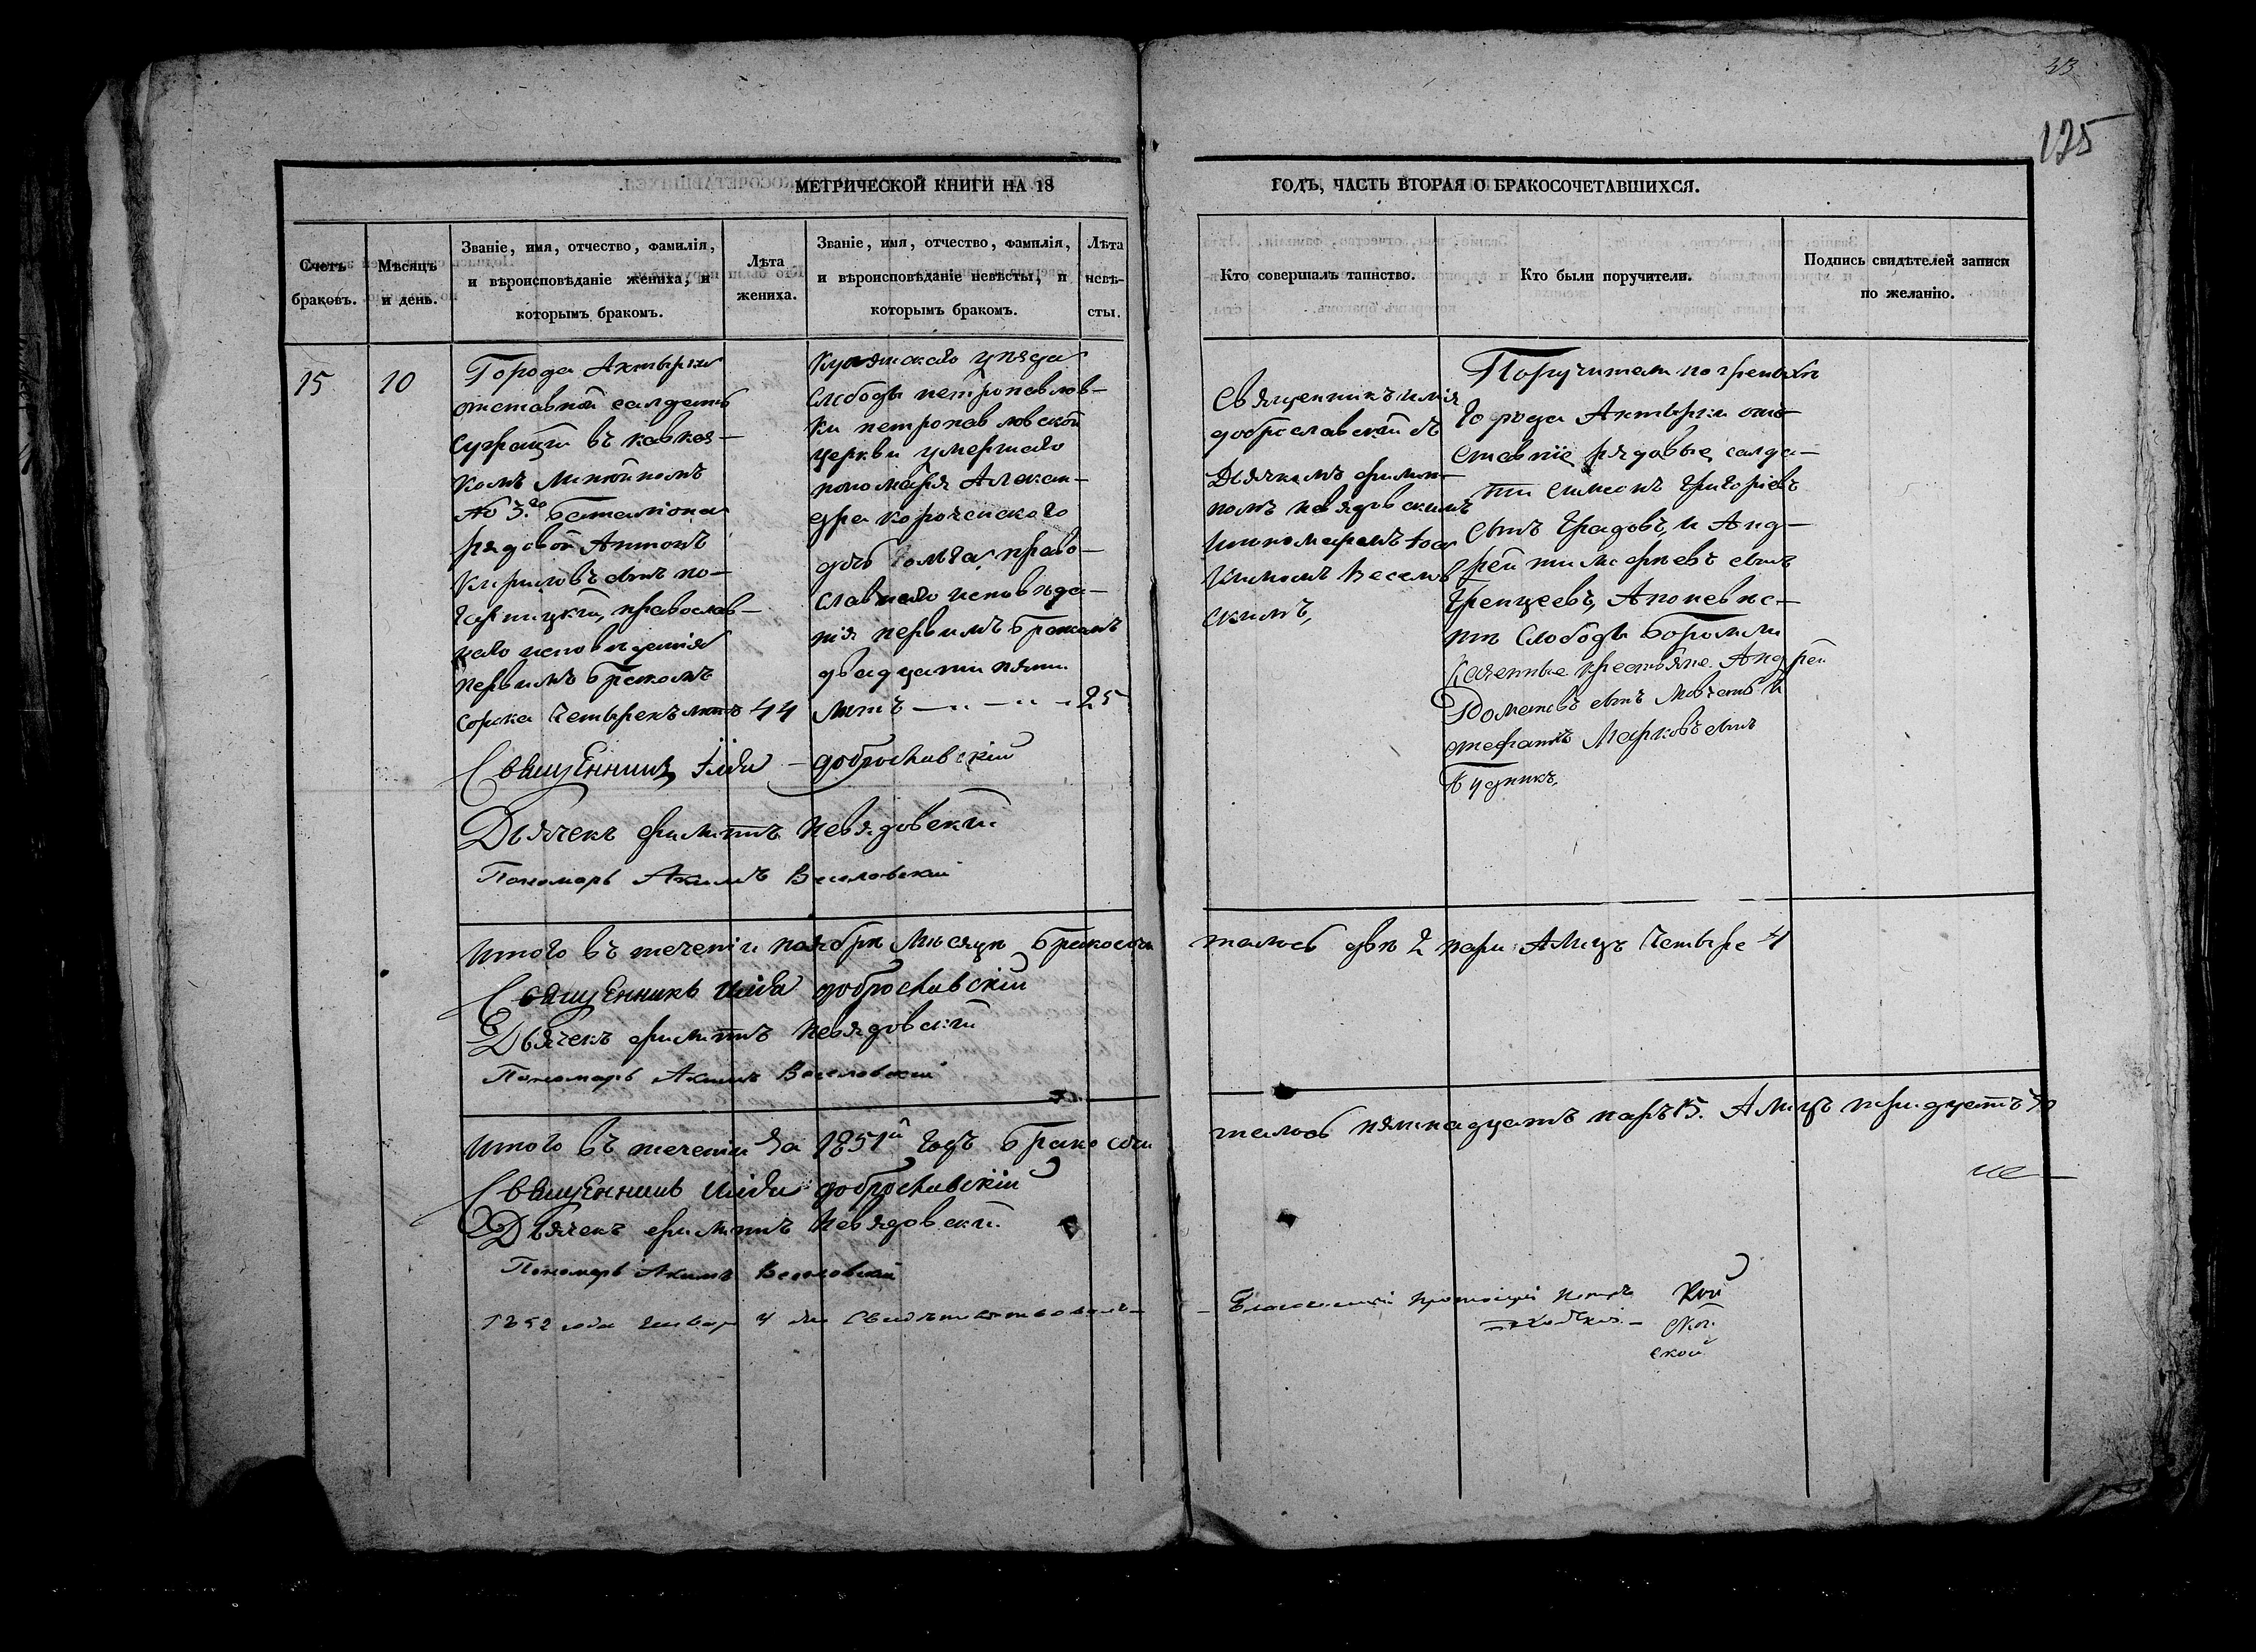 33
125
МЕТРИЧЕСКОЙ КНИГИ НА 18
ГОДЪ, ЧАСТЬ ВТОРАЯ О БРАКОСОЧЕТАВШИХСЯ.
Счетъ браковъ.
Мѣсяцъ и день.
Званіе, имя, отчество, фамилія,
и вѣроисповѣданіе жениха, и
которымъ бракомъ.
Лѣта
жениха.
Званіе, имя, отчество, фамилія,
и вѣроисповѣданіе невѣсты, и
которымъ бракомъ.
Лѣта
невѣ-
сты.
Кто совершалъ таинство.
Кто были поручители.
Подпись свидѣтелей записи
по желанію.
15
10
Города Ахтырки
отставной салдатъ
въ кавказ-
комъ Линѣйномъ
№ 3.го баталіона
рядовой Антонъ
Кириловъ сынъ по-
православ-
наго исповеданія
первымъ бракомъ
сорока четырехъ лѣтъ 44
Купянскаго уѣзда
слободы петропавлов-
ки петропавловской
церкви умершаго
пономаря Алексан-
дра короченскаго
дочь право-
славнаго исповѣда-
нія первымъ бракомъ
двадцати пяти
лѣтъ 25
Священникъ илія
доброславскій съ
Дьячкомъ филип-
помъ невядовскимъ
и пономаремъ Іоа
кимомъ Веселов
скимъ,
Поручители по женихѣ
города Ахтырки от-
ставніе рядовые салда-
ти симеонъ григоріевъ
сынъ Градовъ, и Анд-
рей сынъ
А по невѣс-
тѣ слободы Боромли
казенные крестьяне Андрей
сынъ и
стефанъ Марковъ сынъ
Будникъ.
Священникъ Іліа доброславскій
Дьячекъ филиппъ Невядовскій
Пономарь Акимъ Веселовскій
Итого въ теченіи ноября мѣсяца бракосоче
талось двѣ 2 пари А лицъ четыре 4
Священникъ Иліа доброславскій
Дьячекъ филиппъ Невядовскій
Пономарь Акимъ Веселовскій
Итого въ теченіи за 1851й годъ бракосоче
талось пятнадцать паръ 15. А лицъ тридцать 30
Священникъ Иліа доброславскій
Дьячекъ филиппъ Невядовскій
Пономарь Акимъ Веселовскій
1852 года Январ 4 дня Свидѣтельствовалъ
Благочинный Протоіерей Петръ
Кой
ской